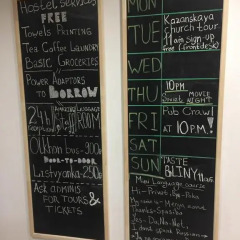 Hostel services
FREE
Towels Printing
Tea Coffee Laundry
Basic Groceries
Power Adaptors
to BORROW
24h
LANGUAGE
ROOM
Olkhon bus-900
DOOR-TO-DOOR
Listvyanka-250
Ask admins
FOR TOURS &
TICKETS
MON
TUE
WED
THU
FRI
SAT
SUN
Kazanskaya
church tour
11am sign-up
free (front desk)
10PM
Soviet MOVIE NIGHT
Pub Crawl
AT 10 P.M!
TASTE
BLINY 11am
Mini Language course
Hi-Privet Bye-Poka
My name is-Menya zovut
Thanks-Spasibo
Yes-Da/No-Net
I don't speak Russian-